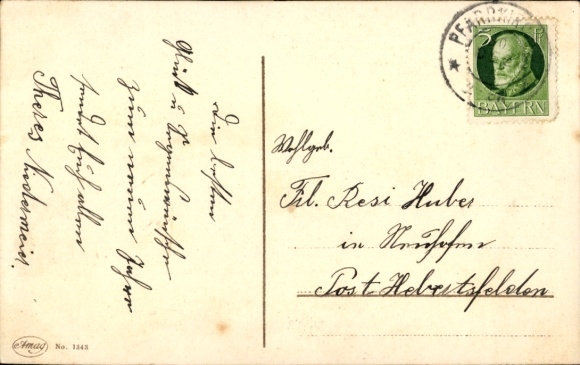 Die besten
Glück u. Segenswünsche
zum neuen Jahre
sendet Euch allen
Theres Niedermeier.
PFARRKIR
5 Pf
BAYERN
Wohlgeb.
Frl. Resi Huber
in Neuhofen
Post Hebertsfelden
Amag No. 1343